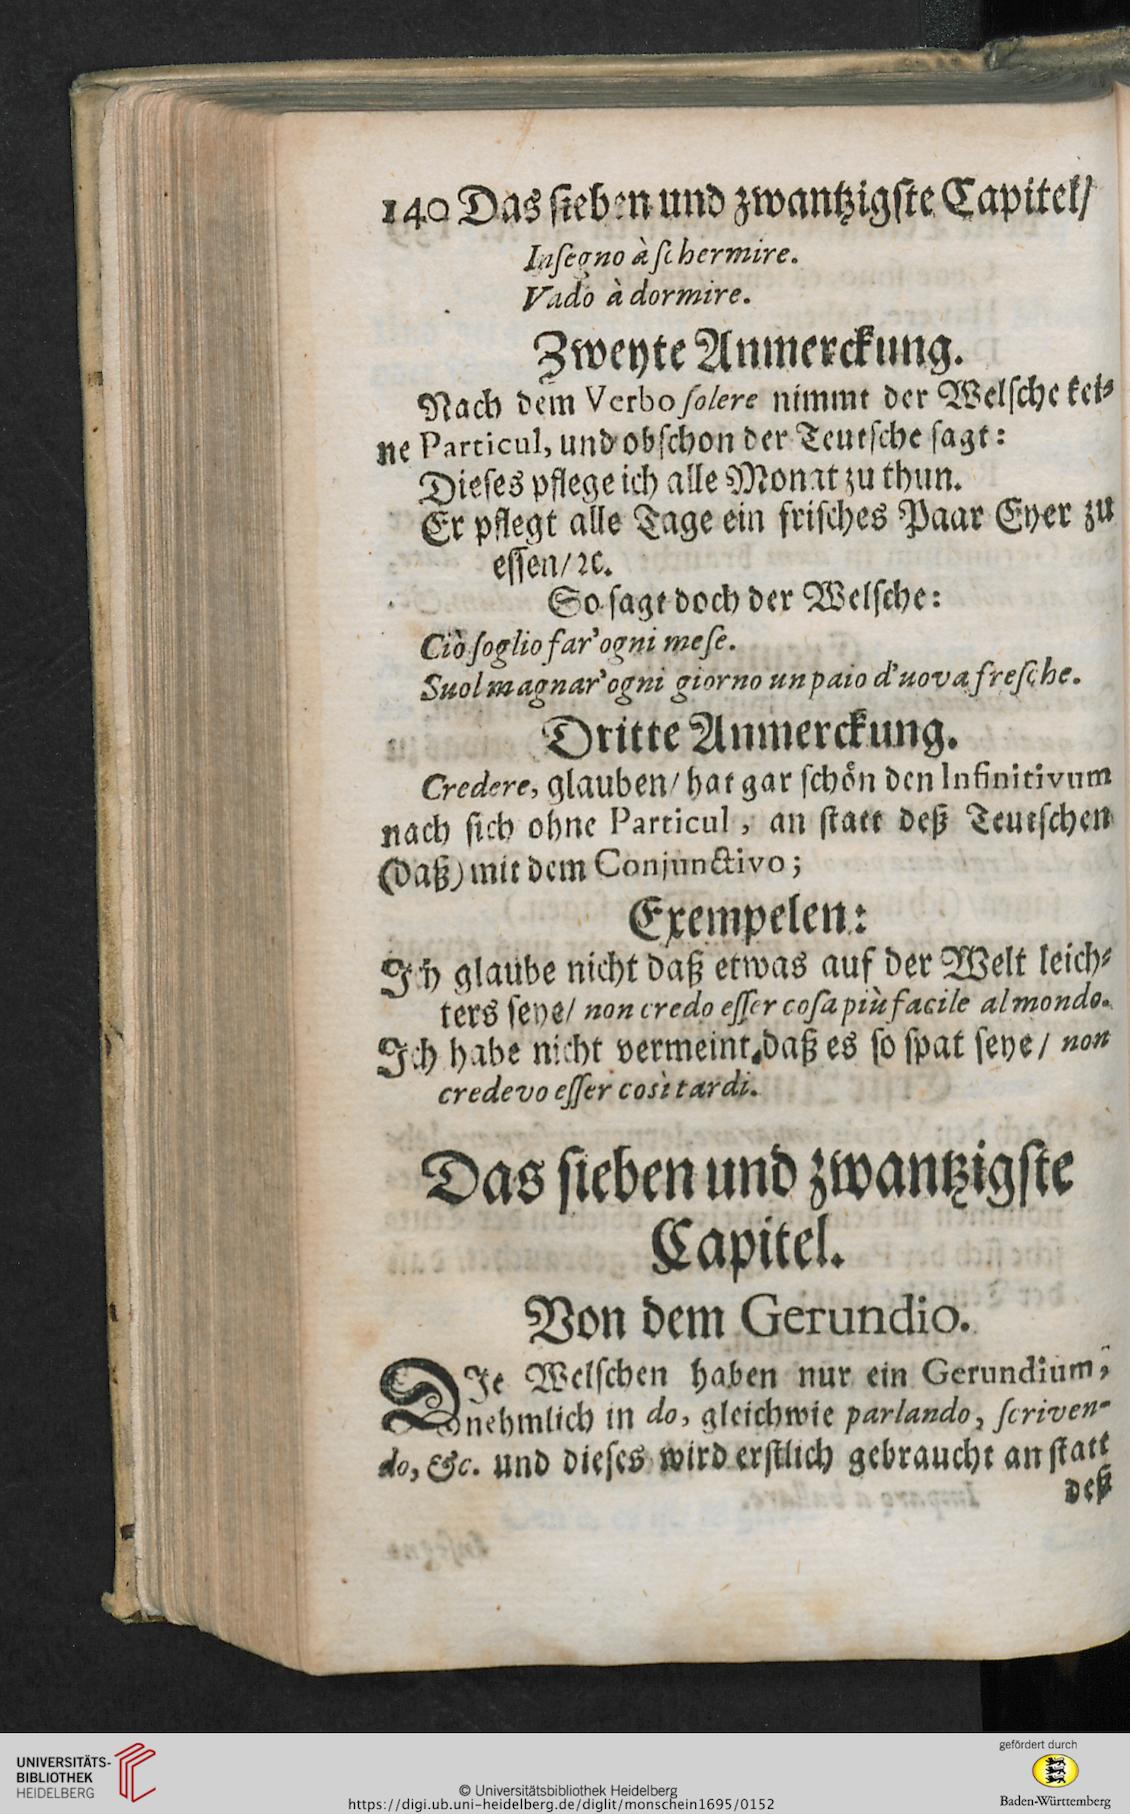 140 Das sieben und zwantzigste Capitel/
Insegno à schermire.
Vado à dormire.
Zweyte Anmerckung.
Nach dem Verbo solere nimmt der Welsche kei-
ne Particul, und obschon der Teutsche sagt:
Dieses pflege ich alle Monat zu thun.
Er pflegt alle Tage ein frisches Paar Eyer zu
essen/ ꝛc.
So sagt doch der Welsche:
Ciò soglio far' ogni mese.
Suol magnar' ogni giorno un paio d'uova fresche.
Dritte Anmerckung.
Credere, glauben/ hat gar schön den Infinitivum
nach sich ohne Particul, an statt deß Teutschen
(daß) mit dem Conjunctivo;
Exempelen:
Ich glaube nicht daß etwas auf der Welt leich-
ters seye/ non credo esser cosa più facile al mondo.
Ich habe nicht vermeint, daß es so spat seye/ non
credevo esser così tardi.
Das sieben und zwantzigste
Capitel.
Von dem Gerundio.
DJe Welschen haben nur ein Gerundium,
nehmlich in do, gleichwie parlando, scriven-
do, &c. und dieses wird erstlich gebraucht an statt
deß
UNIVERSITÄTS-
BIBLIOTHEK
HEIDELBERG
© Universitätsbibliothek Heidelberg
https://digi.ub.uni-heidelberg.de/diglit/monschein1695/0152
gefördert durch
Baden-Württemberg